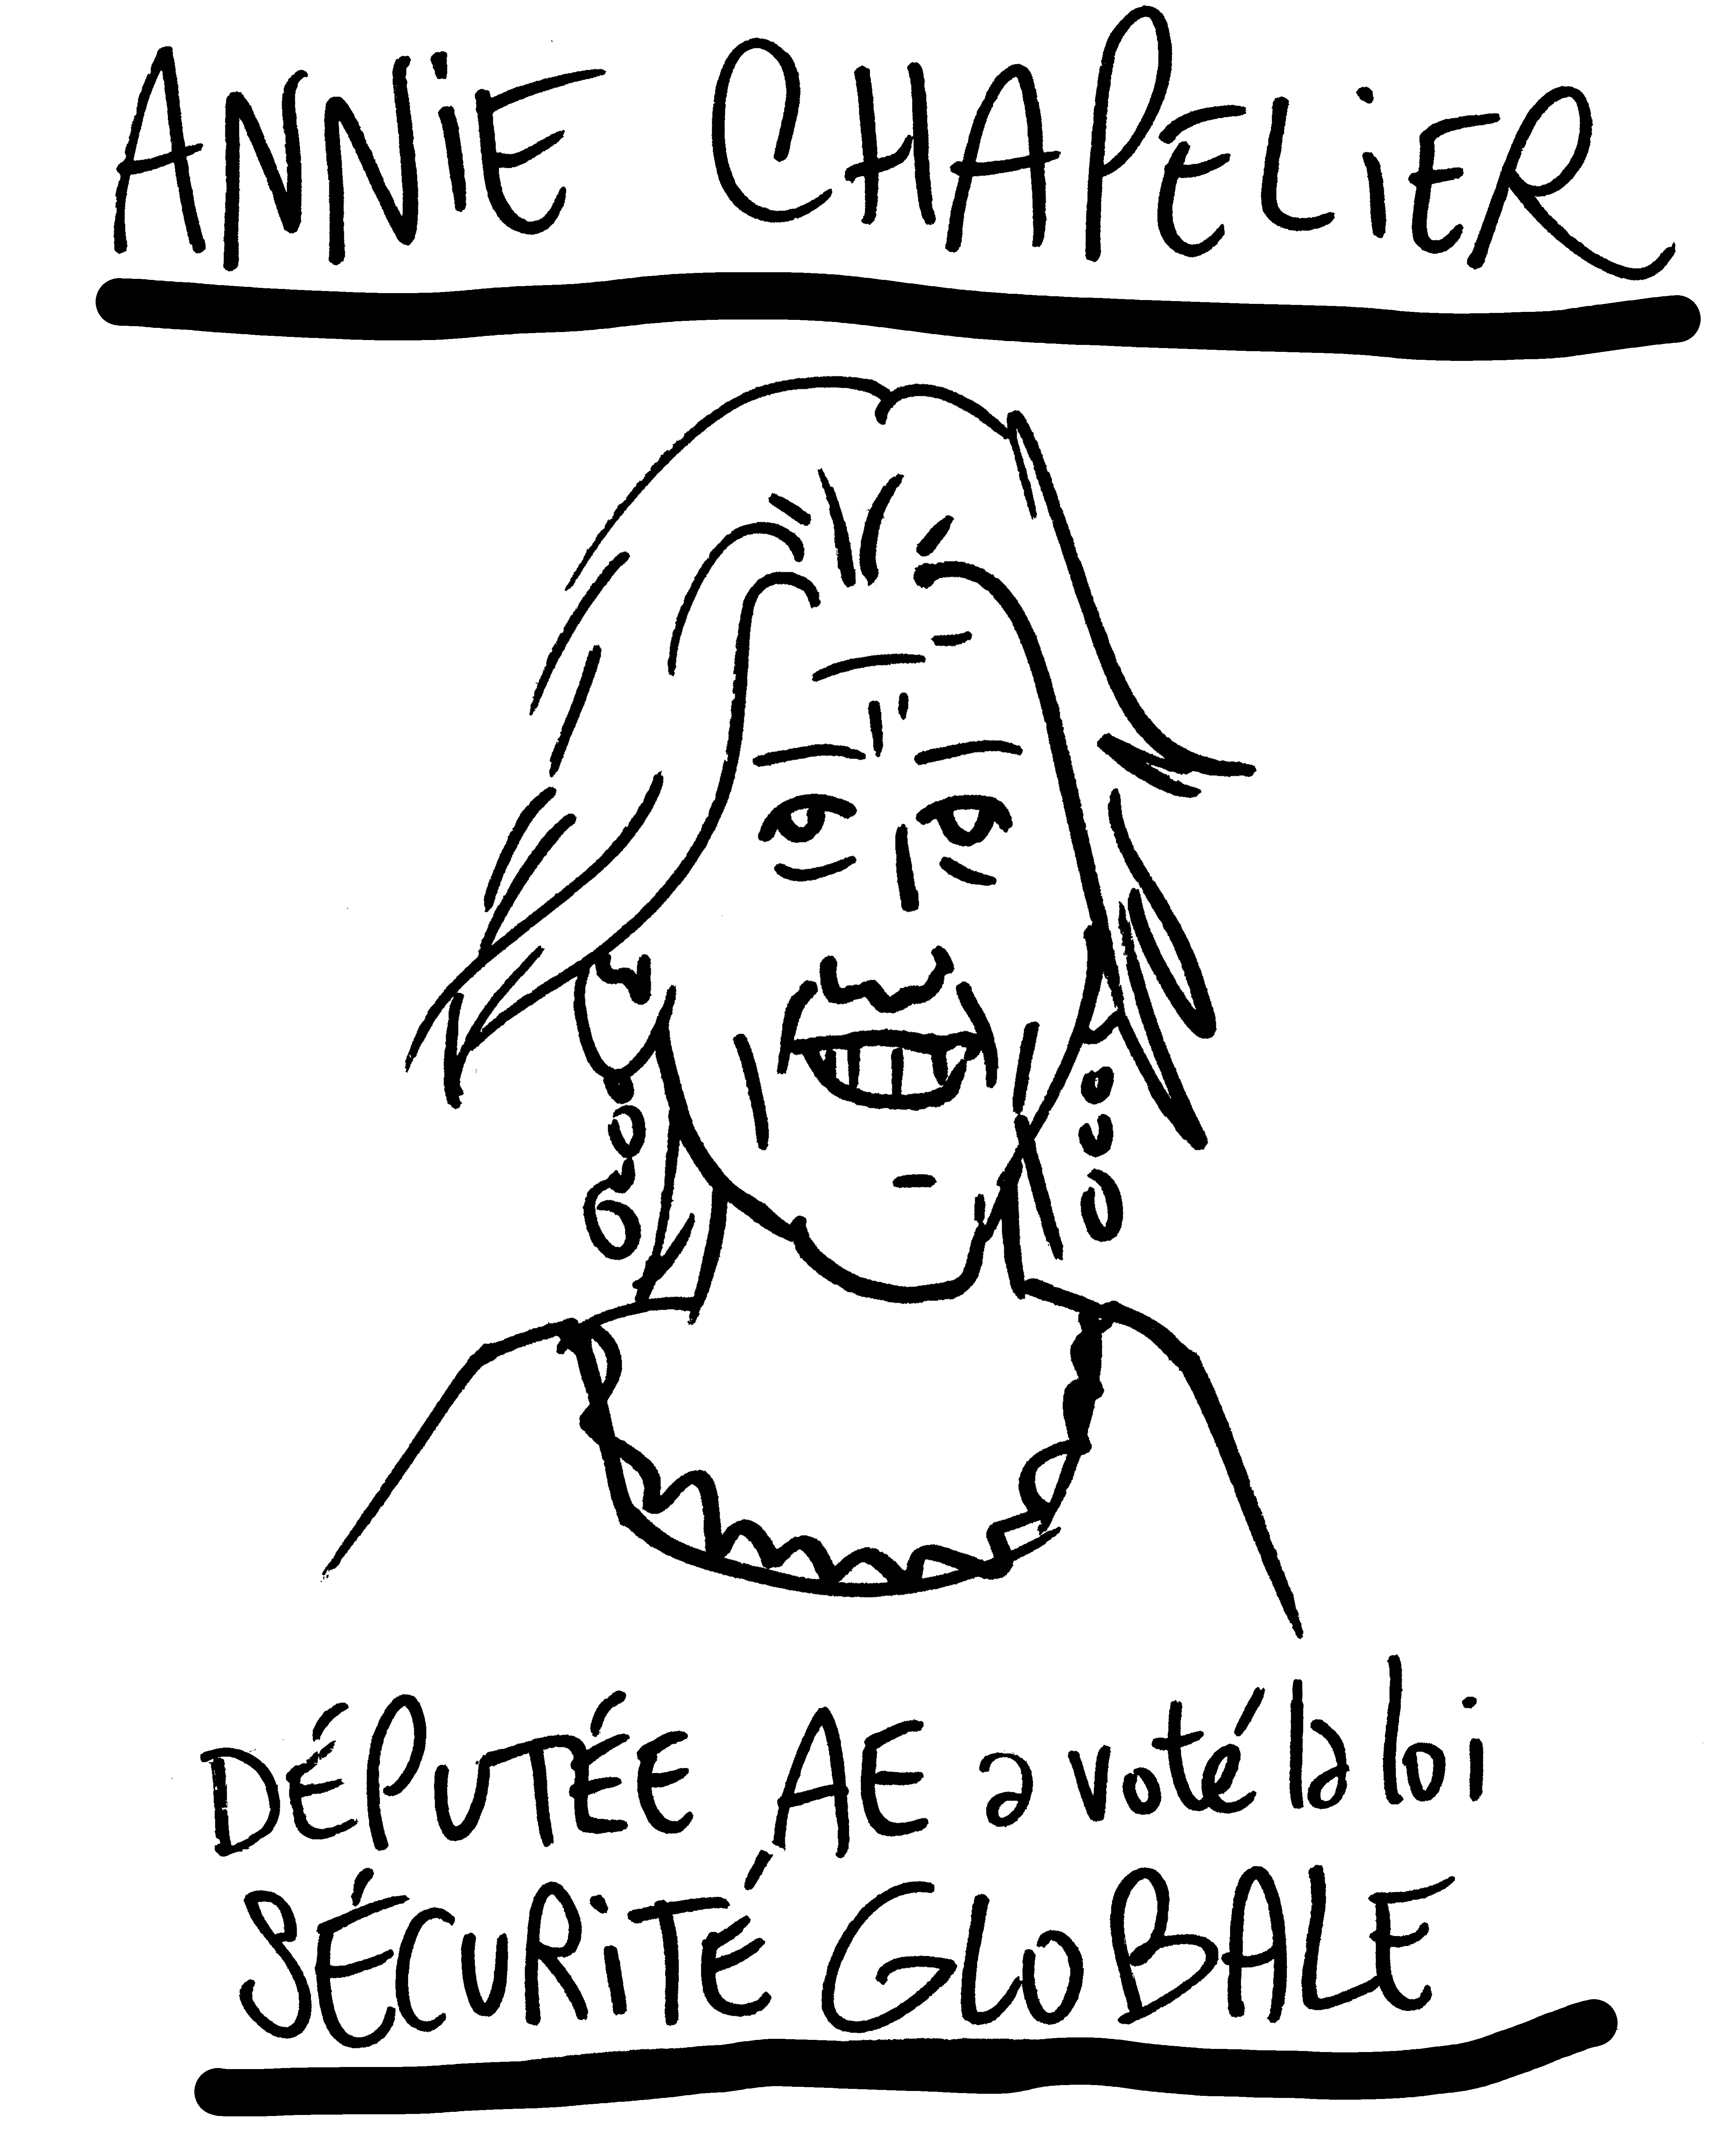 ANNiE CHAPELiER
DÉPUTÉE AE a voté la loi
SÉCURiTÉ GLOBALE